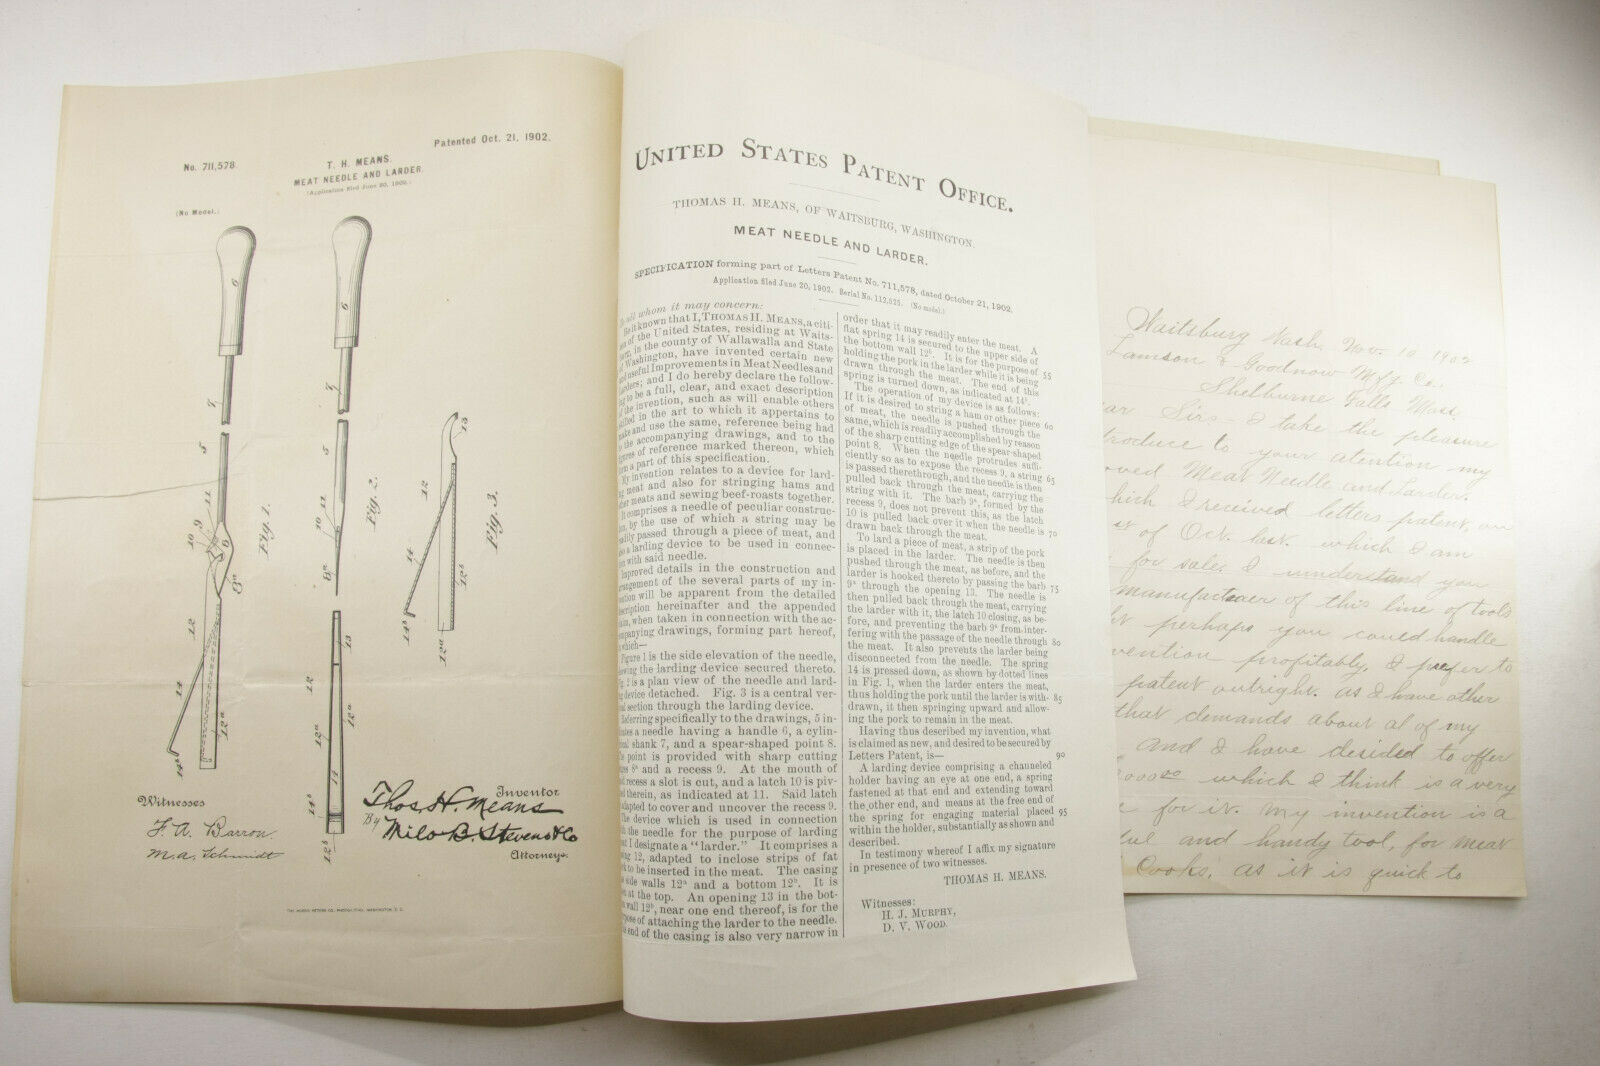 No. 711,578.
Patented Oct. 21, 1902.
T. H. MEANS.
MEAT NEEDLE AND LARDER.
(Application filed June 20, 1902.)
(No Model.)
6
7
5
11
9
10
8ª
12
14
14ᵇ
12ª
Fig. 1.
6
7
5
11
10
8ª
Fig. 2.
13
12
12ª
12ª
14
14ᵇ
12ᵇ
13
12
Fig. 3.
14
14ᵇ
12ᵇ
12ª
Witnesses
F. A. Barron.
M. A. Schmidt
Inventor
Thos. H. Means
By Milo B. Stevens & Co
Attorneys.
THE NORRIS PETERS CO., PHOTO-LITHO., WASHINGTON, D. C.
UNITED STATES PATENT OFFICE.
THOMAS H. MEANS, OF WAITSBURG, WASHINGTON.
MEAT NEEDLE AND LARDER.
SPECIFICATION forming part of Letters Patent No. 711,578, dated October 21, 1902.
Application filed June 20, 1902. Serial No. 112,525. (No model.)
all whom it may concern:
Be it known that I, THOMAS H. MEANS, a citi-
of the United States, residing at Waits-
in the county of Wallawalla and State
Washington, have invented certain new
useful Improvements in Meat Needles and
and I do hereby declare the follow-
to be a full, clear, and exact description
the invention, such as will enable others
in the art to which it appertains to
and use the same, reference being had
the accompanying drawings, and to the
of reference marked thereon, which
a part of this specification.
My invention relates to a device for lard-
meat and also for stringing hams and
meats and sewing beef-roasts together.
It comprises a needle of peculiar construc-
by the use of which a string may be
passed through a piece of meat, and
a larding device to be used in connec-
with said needle.
Improved details in the construction and
arrangement of the several parts of my in-
will be apparent from the detailed
hereinafter and the appended
when taken in connection with the ac-
companying drawings, forming part hereof,
which—
Figure 1 is the side elevation of the needle,
the larding device secured thereto.
is a plan view of the needle and lard-
device detached. Fig. 3 is a central ver-
section through the larding device.
Referring specifically to the drawings, 5 in-
a needle having a handle 6, a cylin-
shank 7, and a spear-shaped point 8.
point is provided with sharp cutting
8ª and a recess 9. At the mouth of
recess a slot is cut, and a latch 10 is piv-
therein, as indicated at 11. Said latch
adapted to cover and uncover the recess 9.
device which is used in connection
the needle for the purpose of larding
I designate a "larder." It comprises a
12, adapted to inclose strips of fat
to be inserted in the meat. The casing
side walls 12ª and a bottom 12ᵇ. It is
at the top. An opening 13 in the bot-
wall 12ᵇ, near one end thereof, is for the
of attaching the larder to the needle.
end of the casing is also very narrow in
order that it may readily enter the meat. A
flat spring 14 is secured to the upper side of
the bottom wall 12ᵇ. It is for the purpose of
holding the pork in the larder while it is being 55
drawn through the meat. The end of this
spring is turned down, as indicated at 14ᵇ.
The operation of my device is as follows:
If it is desired to string a ham or other piece 60
of meat, the needle is pushed through the
same, which is readily accomplished by reason
of the sharp cutting edge of the spear-shaped
point 8. When the needle protrudes suffi-
ciently so as to expose the recess 9, a string 65
is passed therethrough, and the needle is then
pulled back through the meat, carrying the
string with it. The barb 9ª, formed by the
recess 9, does not prevent this, as the latch
10 is pulled back over it when the needle is 70
drawn back through the meat.
To lard a piece of meat, a strip of the pork
is placed in the larder. The needle is then
pushed through the meat, as before, and the
larder is hooked thereto by passing the barb
9ª through the opening 13. The needle is 75
then pulled back through the meat, carrying
the larder with it, the latch 10 closing, as be-
fore, and preventing the barb 9ª from inter-
fering with the passage of the needle through 80
the meat. It also prevents the larder being
disconnected from the needle. The spring
14 is pressed down, as shown by dotted lines
in Fig. 1, when the larder enters the meat,
thus holding the pork until the larder is with- 85
drawn, it then springing upward and allow-
ing the pork to remain in the meat.
Having thus described my invention, what
is claimed as new, and desired to be secured by
Letters Patent, is— 90
A larding device comprising a channeled
holder having an eye at one end, a spring
fastened at that end and extending toward
the other end, and means at the free end of
the spring for engaging material placed 95
within the holder, substantially as shown and
described.
In testimony whereof I affix my signature
in presence of two witnesses.
THOMAS H. MEANS.
Witnesses:
H. J. MURPHY,
D. V. WOOD.
Waitsburg Wash. Nov. 10 1902
Lamson & Goodnow Mfg. Co.
Shelburne Falls Mass
Sirs— I take the pleasure
to your atention my
Meat Needle and Larder.
which I received letters patent, on
of Oct. last. which I am
for sale, I understand you
manufactuer of this line of tools
perhaps you could handle
profitably, I prefer to
patent outright. as I have other
that demands about al of my
and I have desided to offer
which I think is a very
for it. My invention is a
and handy tool, for meat
Cooks, as it is quick to